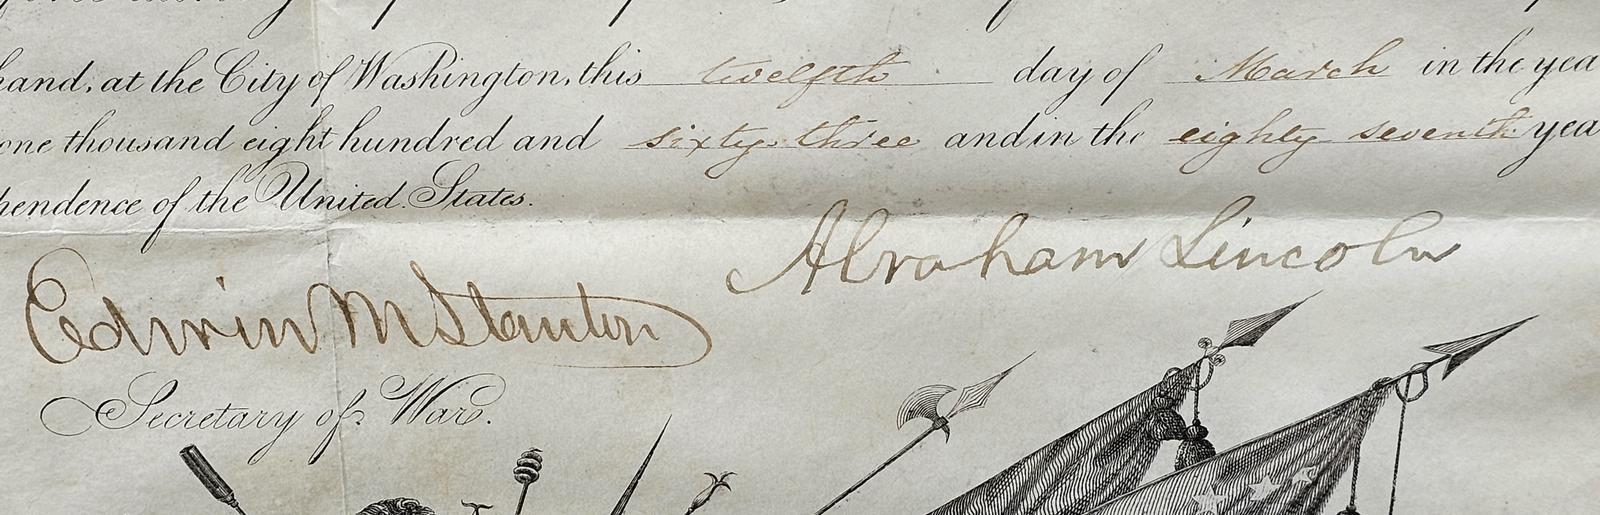 hand, at the City of Washington, this twelfth day of March in the yea
one thousand eight hundred and sixty three and in the eighty seventh yea
pendence of the United States.
Abraham Lincoln
Edwin M Stanton
Secretary of War.